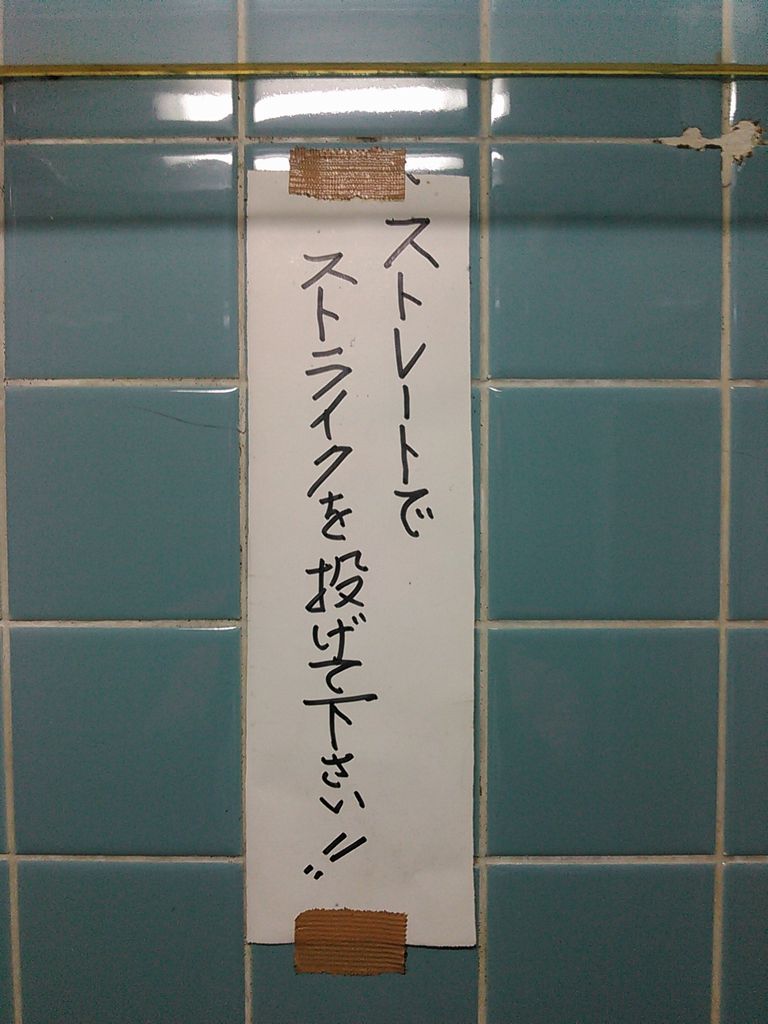 ストレートで
ストライクを投げて下さい!!